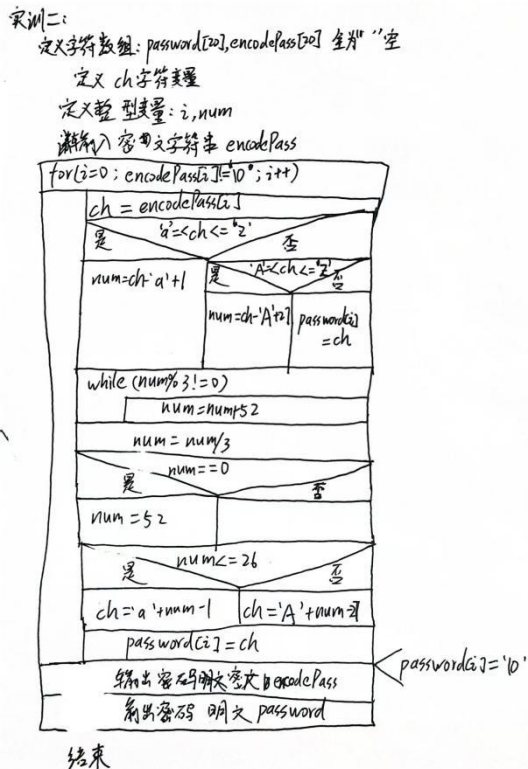 实训二:
定义字符数组: password[20],encodePass[20] 全为" "空
定义 ch 字符变量
定义整型变量: i,num
输入密文字符串 encodePass
for(i=0; encodePass[i]!='\0'; i++)
ch = encodePass[i]
'a'=<ch<='z'
是 否
'A'=<ch<='Z'
num=ch-'a'+1 是 否
num=ch-'A'+27 password[i]
=ch
while (num%3!=0)
num=num+52
num = num/3
num==0
是 否
num = 52
num<=26
是 否
ch='a'+num-1 ch='A'+num-27
password[i]=ch
password[i]='\0'
输出密码 密文 encodePass
输出密码 明文 password
结束